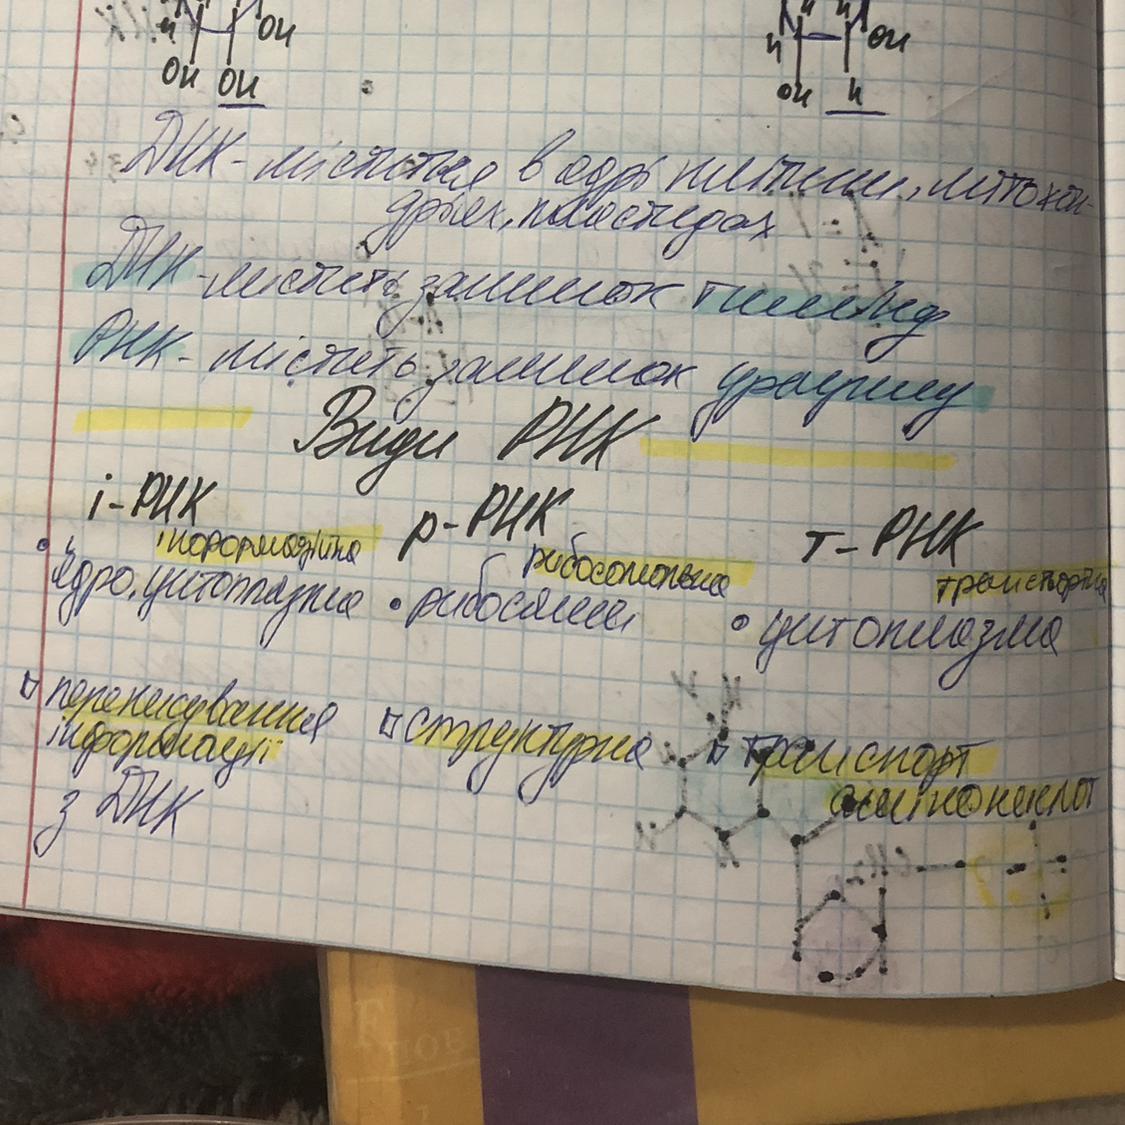 H OH H OH
OH OH OH H
ДНК - міститься в ядрі клітини, мітохон-
дріях, пластидах
ДНК - містить залишок тиміну
РНК - містить залишок урацилу
Види РНК
і-РНК р-РНК т-РНК
інформаційна рибосомальна транспортна
ядро, цитоплазма • рибосоми • цитоплазма
переписування структурна транспорт
інформації амінокислот
з ДНК